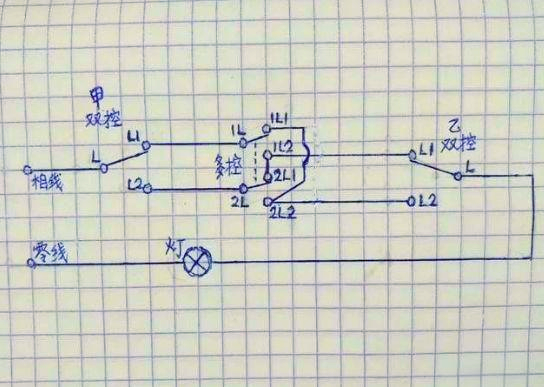 甲
双控
L1
L
L2
相线
1L
多控
2L
1L1
1L2
2L1
2L2
乙
双控
L1
L
L2
零线
灯